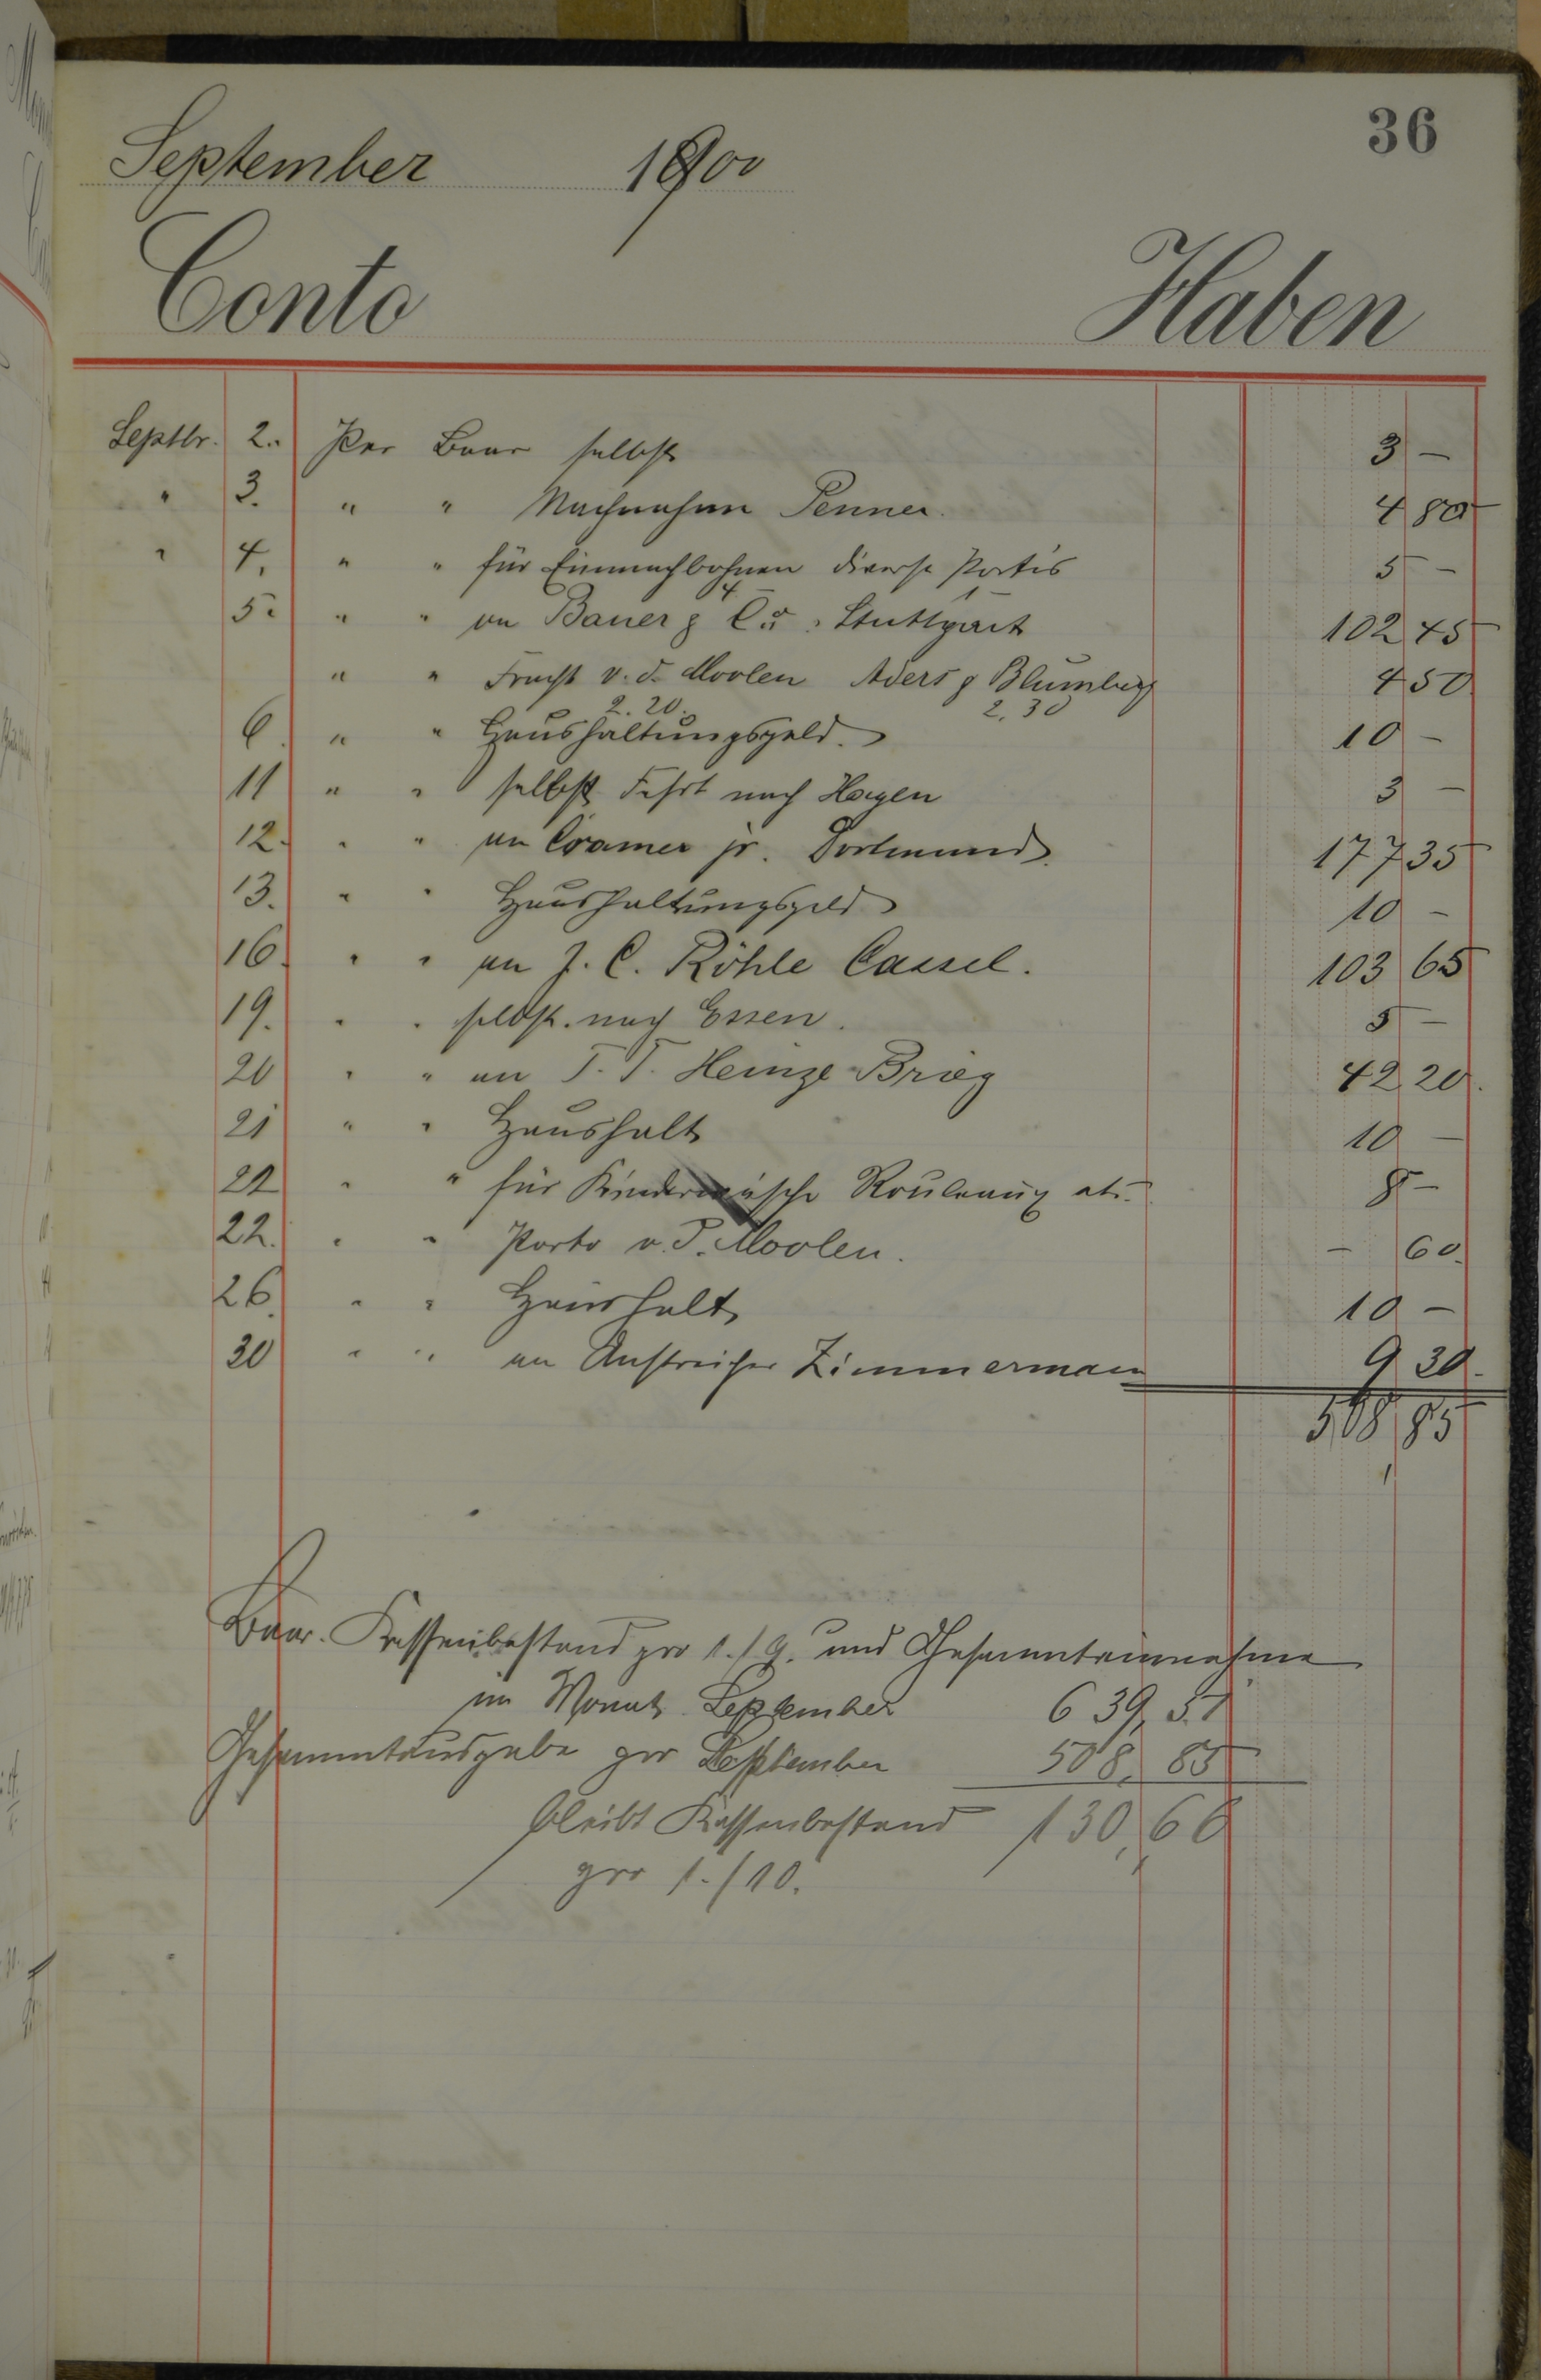 36
September 1900
Conto Haben
Septbr. 2. Per Baar selbst 3 –
" 3. " " Nachnahme Penner. 4 80
" 4. " " für Einmachbohnen diverse Portis 5 –
5. " " an Bauer & Co. Stuttgart 102 45
" " Fracht v. d. Moolen Aders & Blumberg 4 50
2.20. 2,30
6. " " Haushaltungsgeld. 10 –
11 " " selbst Fahrt nach Hagen 3 –
12. " " an Cramer jr. Dortmund. 177 35
13. " " Haushaltungsgeld 10 –
16. " " an J. C. Röhle Cassel. 103 65
19. " " selbst. nach Essen. 5 –
20 " " an T. T. Heinze Brieg 42 20.
21 " " Haushalt 10 –
22 " " für Kinderwäsche Rouleaux etc. 8 –
22. " " Porto v. d. Moolen. – 60.
26. " " Haushalt 10 –
30 " " an Anstreicher Zimmermann 9 30.
508 85
Baar. Kassenbestand pro 1./9. und Gesammteinnahme
im Monat September 639,51
Gesammtausgabe pro September 508,85
bleibt Kassenbestand 130,66
pro 1./10.